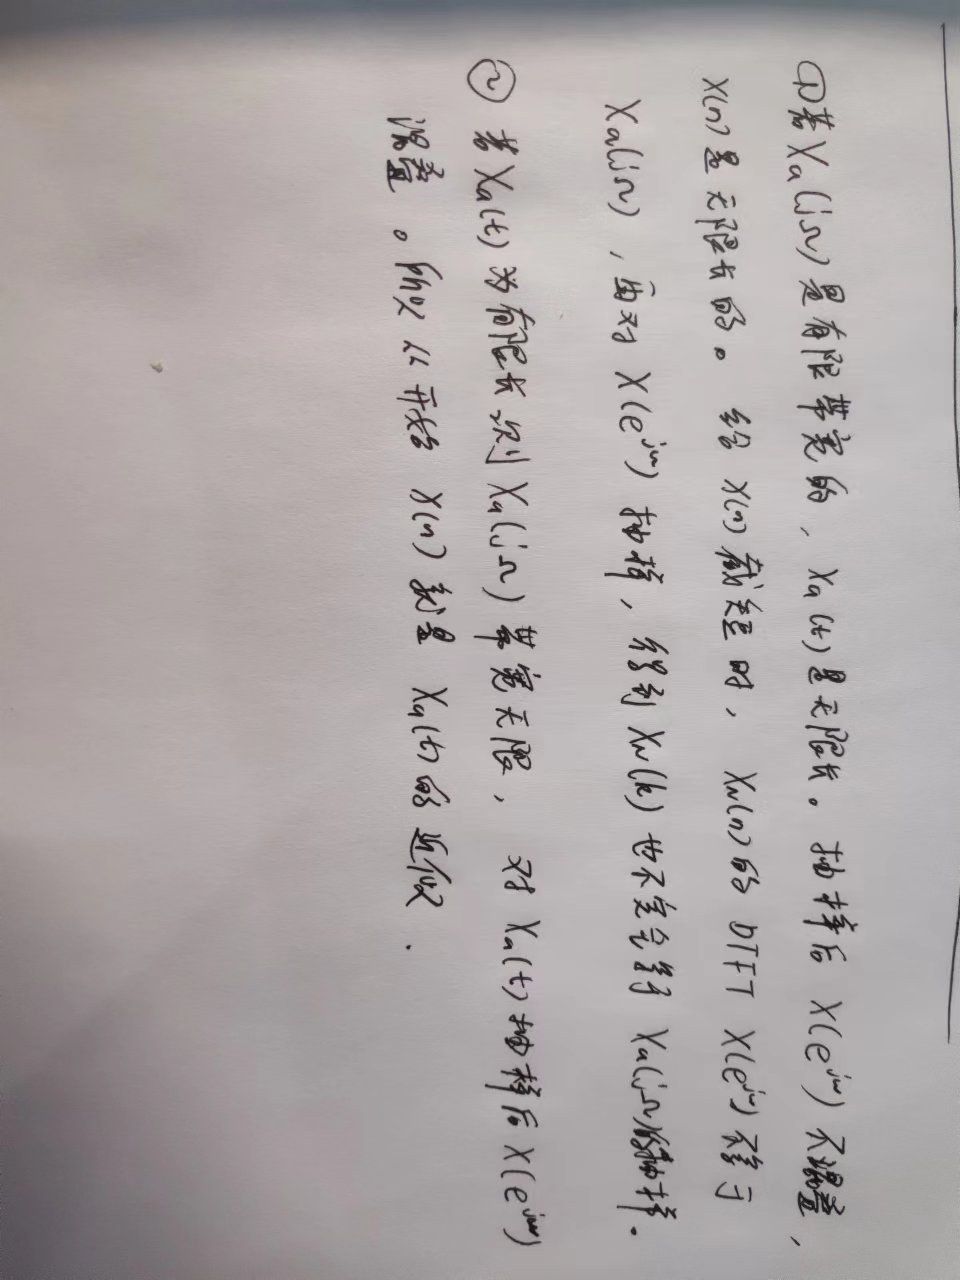 ①若Xa(jΩ)是有限带宽的，Xa(t)是无限长。抽样后 X(e^jω) 不混叠，
X(n)是无限长的。给 X(n) 截短时，XN(n)的 DTFT X(e^jω) 不等于
Xa(jΩ)，再对 X(e^jω) 抽样，得到 XN(k) 也不完全等于 Xa(jΩ)的抽样。
② 若Xa(t)为有限长，则Xa(jΩ)带宽无限，对Xa(t)抽样后X(e^jω)
混叠。所以从开始 X(n) 就是 Xa(t)的近似.